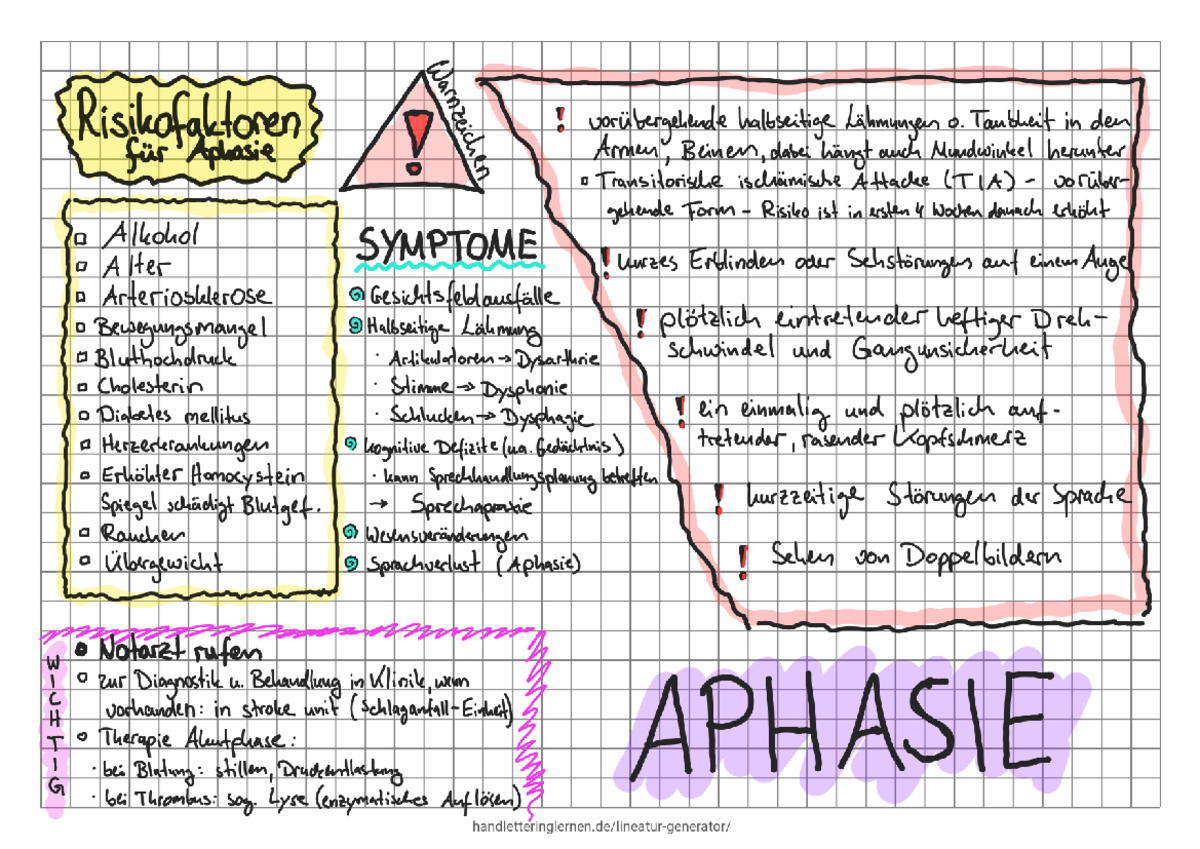 Risikofaktoren
für Aphasie
Alkohol
Alter
Arteriosklerose
Bewegungsmangel
Bluthochdruck
Cholesterin
Diabetes mellitus
Herzerkrankungen
Erhöhter Homocystein
Spiegel schädigt Blutgef.
Rauchen
Übergewicht
Warnzeichen
!
SYMPTOME
Gesichtsfeldausfälle
Halbseitige Lähmung
· Artikulatoren → Dysarthrie
· Stimme → Dysphonie
· Schlucken → Dysphagie
Kognitive Defizite (u.a. Gedächtnis)
· kann Sprechhandlungsplanung betreffen
→ Sprechapraxie
Wesensveränderungen
Sprachverlust (Aphasie)
! vorübergehende halbseitige Lähmungen o. Taubheit in den
Armen, Beinen, dabei hängt auch Mundwinkel herunter
Transitorische ischämische Attacke (TIA) - vorüber-
gehende Form - Risiko ist in ersten 4 Wochen danach erhöht
! kurzes Erblinden oder Sehstörungen auf einem Auge
! plötzlich eintretender heftiger Dreh-
schwindel und Gangunsicherheit
! ein einmalig und plötzlich auf-
tretender, rasender Kopfschmerz
! kurzzeitige Störungen der Sprache
! Sehen von Doppelbildern
WICHTIG
Notarzt rufen
zur Diagnostik u. Behandlung in Klinik, wenn
vorhanden: in stroke unit (Schlaganfall-Einheit)
Therapie Akutphase:
· bei Blutung: stillen, Druckentlastung
· bei Thrombus: sog. Lyse (enzymatisches Auflösen)
APHASIE
handletteringlernen.de/lineatur-generator/